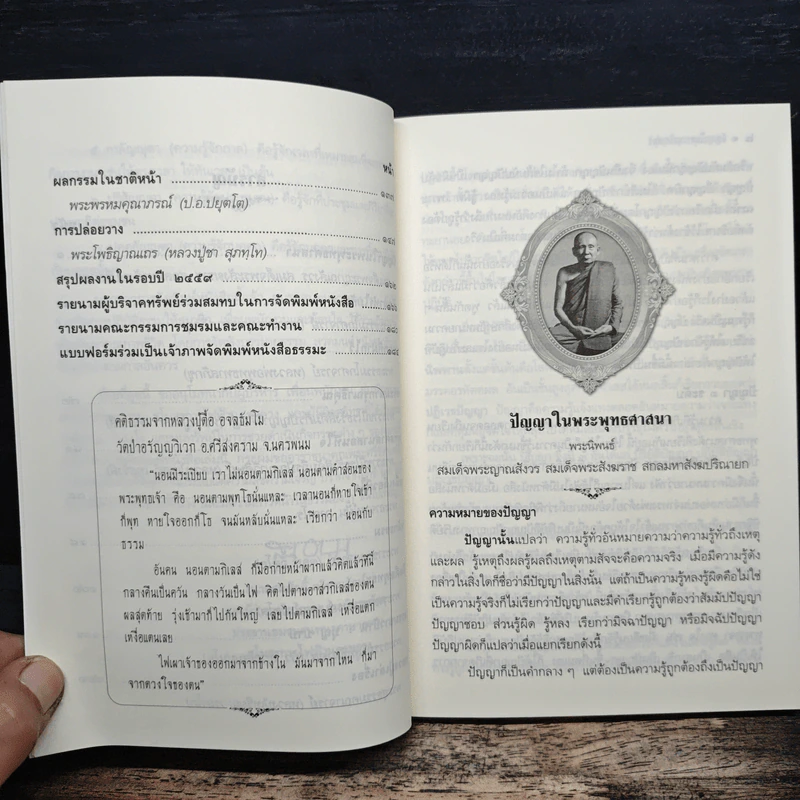 หน้า
ผลกรรมในชาติหน้า ................................................ ๑๓๓
พระพรหมคุณาภรณ์ (ป.อ.ปยุตโต)
การปล่อยวาง ................................................ ๑๔๗
พระโพธิญาณเถร (หลวงปู่ชา สุภทฺโท)
สรุปผลงานในรอบปี ๒๕๕๙ ................................ ๑๖๒
รายนามผู้บริจาคทรัพย์ร่วมสมทบในการจัดพิมพ์หนังสือ ........ ๑๖๖
รายนามคณะกรรมการชมรมและคณะทำงาน ................ ๑๘๐
แบบฟอร์มร่วมเป็นเจ้าภาพจัดพิมพ์หนังสือธรรมะ ............ ๑๘๔
คติธรรมจากหลวงปู่ตื้อ อจลธัมโม
วัดป่าอรัญญวิเวก อ.ศรีสงคราม จ.นครพนม
"นอนมีระเบียบ เราไม่นอนตามกิเลส นอนตามคำสอนของ
พระพุทธเจ้า คือ นอนตามพุทโธนั่นแหละ เวลานอนก็หายใจเข้า
ก็พุท หายใจออกก็โธ จนมันหลับนั่นแหละ เรียกว่า นอนกับ
ธรรม
อันคน นอนตามกิเลส ก็มือก่ายหน้าผากแล้วคิดแล้วทีนี้
กลางคืนเป็นควัน กลางวันเป็นไฟ คิดไปตามอาสวกิเลสของตน
ผลสุดท้าย รุ่งเช้ามาก็ไปกันใหญ่ เลยไปตามกิเลส เหงื่อแตก
เหงื่อแตนเลย
ไฟเผาเจ้าของออกมาจากข้างใน มันมาจากไหน ก็มา
จากดวงใจของตน"
ปัญญาในพระพุทธศาสนา
พระนิพนธ์
สมเด็จพระญาณสังวร สมเด็จพระสังฆราช สกลมหาสังฆปริณายก
ความหมายของปัญญา
ปัญญานั้นแปลว่า ความรู้ทั่วอันหมายความว่าความรู้ทั่วถึงเหตุ
และผล รู้เหตุถึงผลรู้ผลถึงเหตุตามสัจจะคือความจริง เมื่อมีความรู้ดัง
กล่าวในสิ่งใดก็ชื่อว่ามีปัญญาในสิ่งนั้น แต่ถ้าเป็นความรู้หลงรู้ผิดคือไม่ใช่
เป็นความรู้จริงก็ไม่เรียกว่าปัญญาและมีคำเรียกรู้ถูกต้องว่าสัมมัปปัญญา
ปัญญาชอบ ส่วนรู้ผิด รู้หลง เรียกว่ามิจฉาปัญญา หรือมิจฉัปปัญญา
ปัญญาผิดก็แปลว่าเมื่อแยกเรียกดังนี้
ปัญญาก็เป็นคำกลาง ๆ แต่ต้องเป็นความรู้ถูกต้องถึงเป็นปัญญา